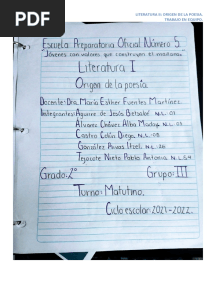 PDF
LITERATURA I: ORIGEN DE LA POESIA
TRABAJO EN EQUIPO
Escuela Preparatoria Oficial Número 5
"Jóvenes con valores que construyen el mañana"
Literatura I
Origen de la poesía
Docente: Dra. María Esther Fuentes Martínez
Integrantes: Aguirre de Jesús Betsabé N.L. 01
Álvarez Chávez Alba Maday N.L. 03
Castro Colín Diego N.L. 08
González Rivas Itzel N.L. 26
Tejocote Nieto Pablo Antonio N.L. 54
Grado: 2° Grupo: III
Turno: Matutino.
Ciclo escolar: 2021-2022.